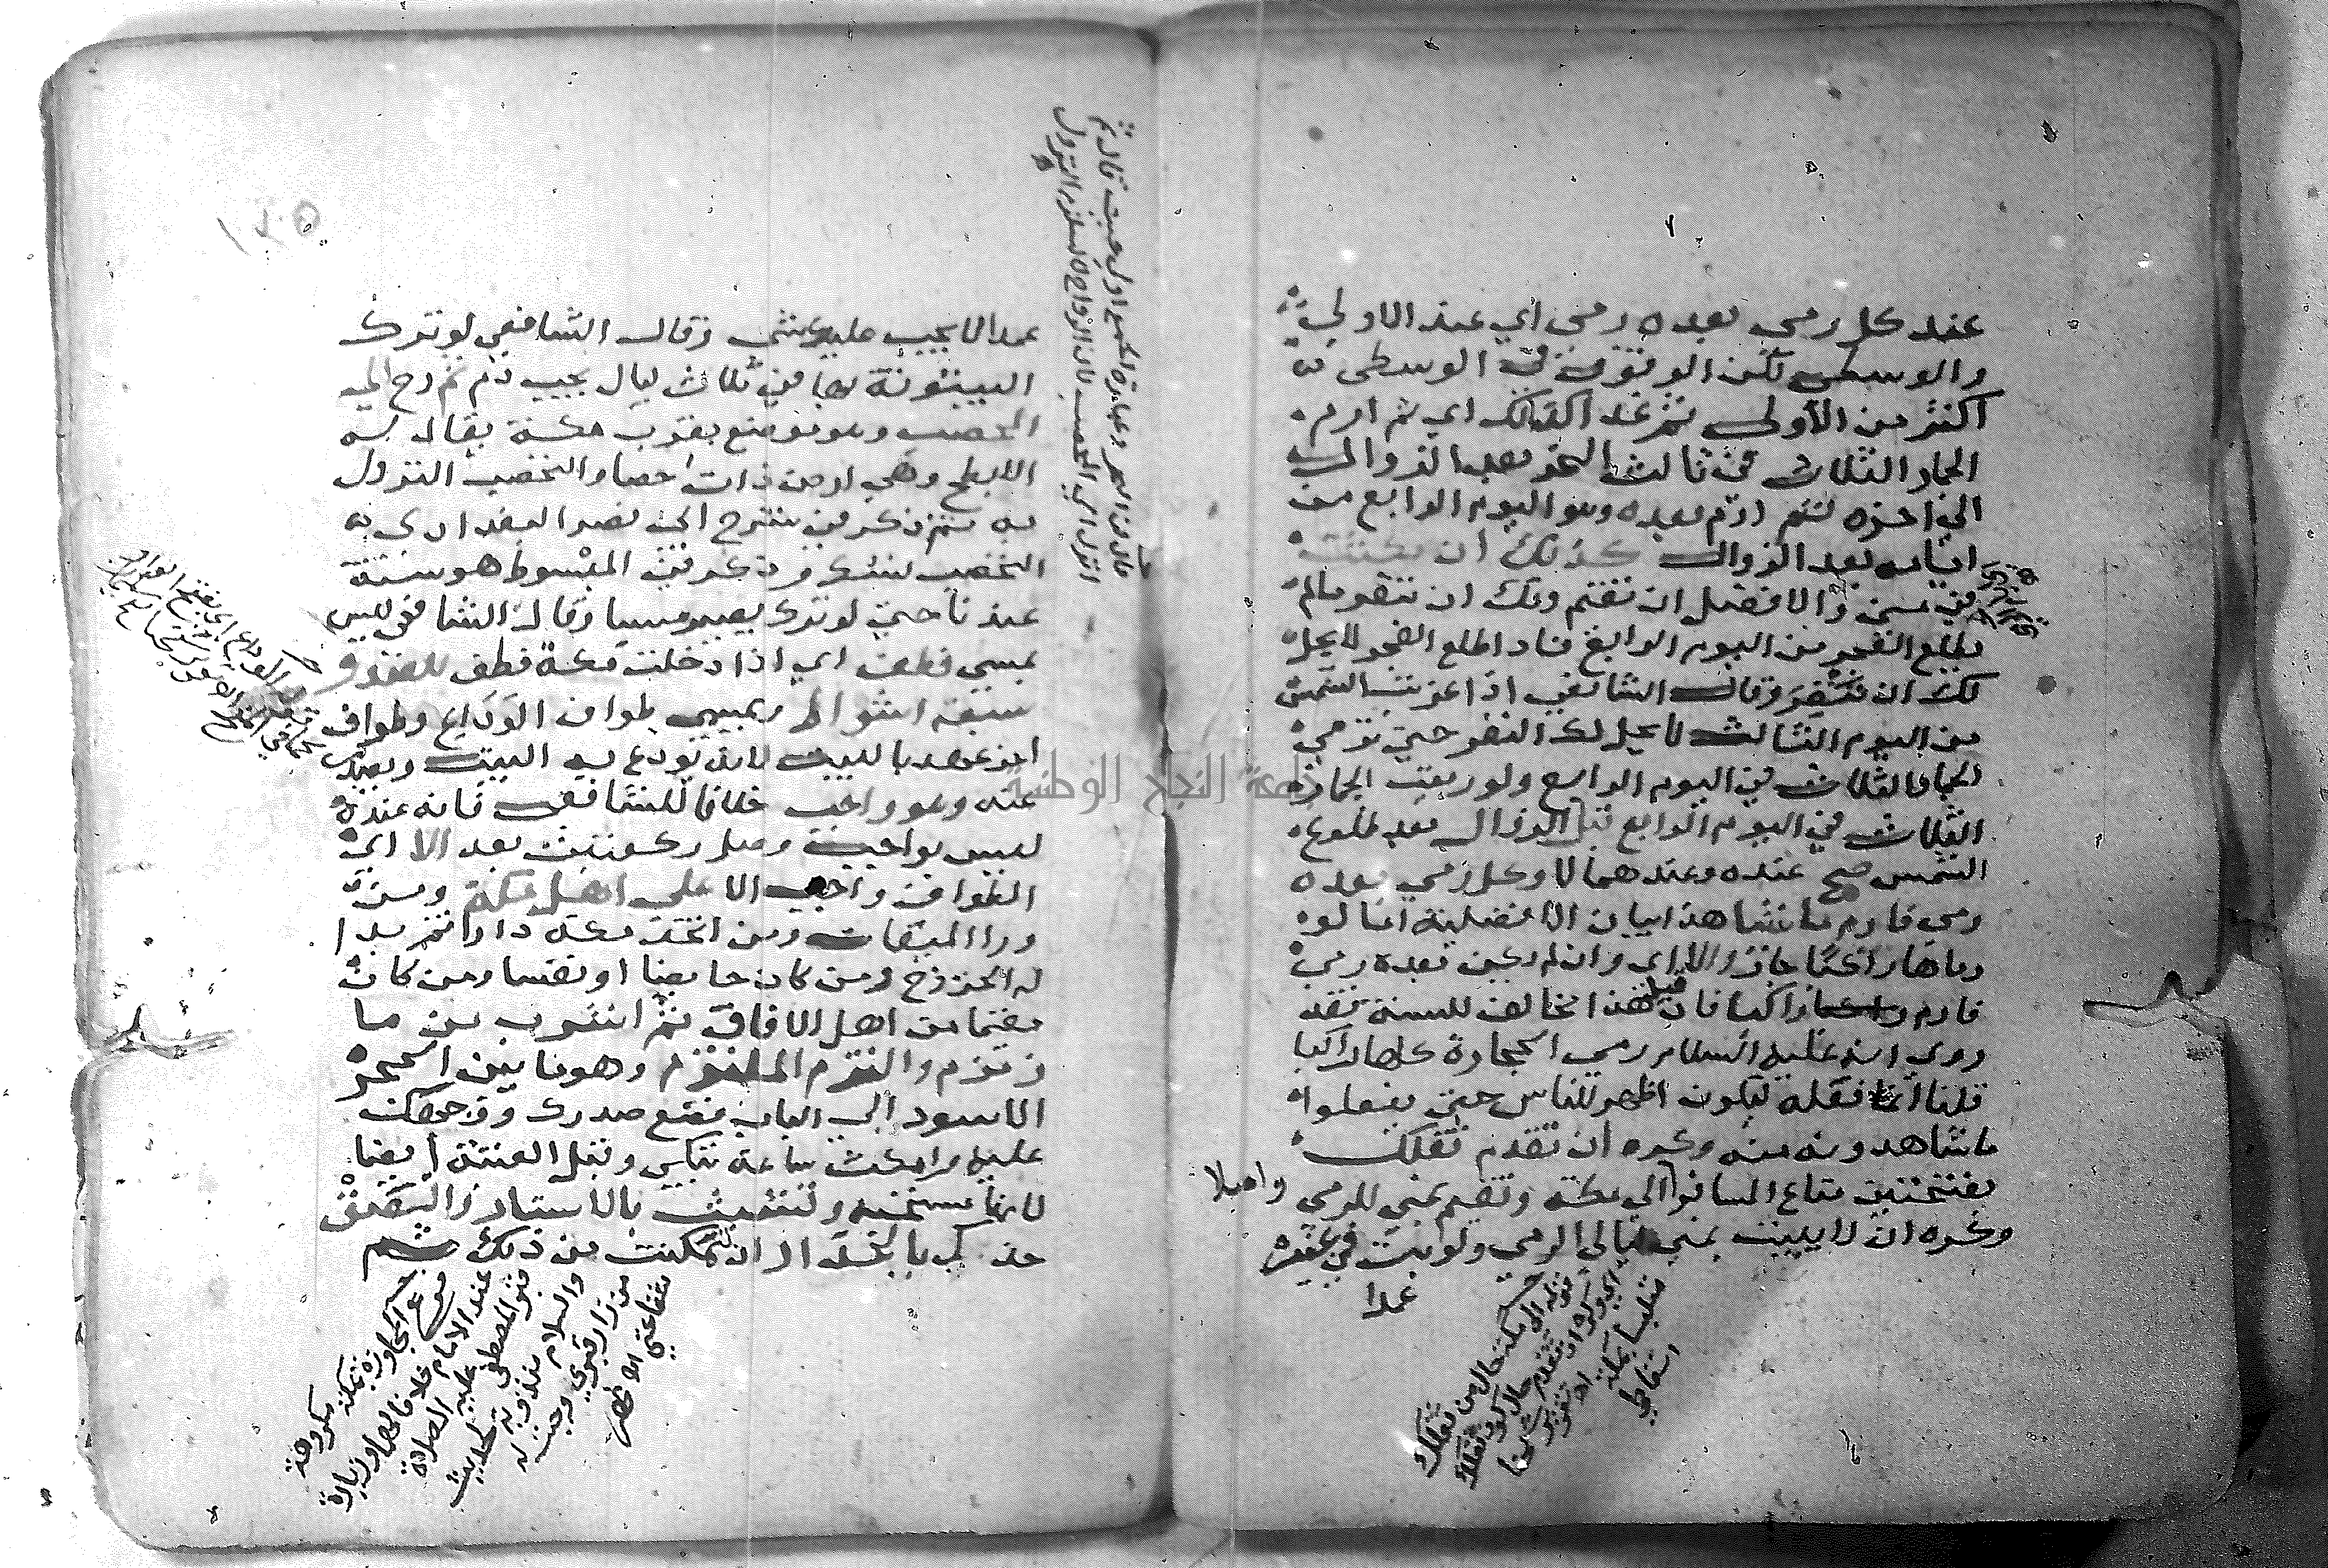 عند كل رمي بعده رمي أي عند الاولى
والوسطى لكن الوقوف في الوسطى
اكثر من الأولى ثم غدا كذلك اي ثم ارم
الجمار الثلاث في ثالث النحر بعد الزوال
الى اخره ثم ارم بعده وهو اليوم الرابع من
ايامه بعد الزوال كذلك ان مكثت
في منى والافضل ان تقم ولك ان تنفر مالم
يطلع الفجر من اليوم الرابع فاذا طلع الفجر لا يحل
لك ان تنفر وقال الشافعي اذا غربت الشمس
من اليوم الثالث لا يحل لك النفر حتى ترمي
الجمار الثلاث في اليوم الرابع ولو رميت الجمار
الثلاث في اليوم الرابع قبل الزوال بعد طلوع
الشمس صح عنده وعندهما لا وكل رمي بعده
رمي فارم ماشيا هذا بيان الافضلية اما لو
رماها راكبا جاز والا اي وان لم يكن بعده رمي
فارم راكبا فان قيل هذا مخالف للسنة فقد
روي انه عليه السلام رمى الجمارة كلها راكبا
قلنا انما فعله ليكون اظهر للناس حتى يفعلوا
ما شاهدونه منه وكره ان تقدم ثقلك
بفتحتين متاع المسافر الى مكة وتقيم بمنى للرمي
واهلا
وكره ان لا يبيت بمنى ليالي الرمي ولو ابيت في غيره
عمدا
قوله الى مكة حال من ثقلك
اي وكره ان تقدم حال كون ثقلك
متلبسا بمكة اهـ تقرير شيخنا
اسقاطي
عمدا لا يجب عليه شيء وقال الشافعي لو ترك
البيتوتة بها في ثلاث ليال يجب دم ثم رح الى
المحصب وهو موضع بقرب مكة يقال له
الابطح وهي ارض ذات حصا والتحصب النزول
به ثم ذكر في شرح الى نصر البغدادي
التحصب نسك وذكر في المبسوط هو سنة
عندنا حتى لو ترك يصير مسيا وقال الشافعي ليس
بمسي فطف اي اذا دخلت مكة فطف للصدر
سبعة اشواط ويسمى طواف الوداع وطواف
اخر عهد بالبيت لانه يودع به البيت ويصدر
عنه وهو واجب خلافا للشافعي فانه عنده
ليس بواجب وصل ركعتين بعد الا اي
الطواف واجب الا على اهل مكة ومن
ورا الميقات ومن اتخذ مكة دارا ثم بدا
له الخروج ومن كان حايضا او نفسا ومن كان
مقيما من اهل الافاق ثم اشرب من ما
زمزم والتزم الملتزم وهو ما بين الحجر
الاسود الى الباب فضع صدرك ووجهك
عليه وامكث ساعة تبكي وقبل العتبة ايضا
لانها مستحبة وتشبث بالاستار والتصق
خدك بالجدار ان تمكنت من ذلك
المجاورة بمكة مكروهة
عند الامام خلافا لهما وزيارة
قبر المصطفى عليه الصلاة
والسلام مندوبة لحديث
من زار قبري وجبت له
شفاعتي